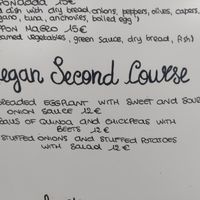 15€
dish with dry bread, onions, peppers, olives, capers,
tuna, anchovies, boiled egg")
MAGRO 15€
vegetables, green sauce, dry bread, fish)
Second Course
EGGPLANT WITH SWEET AND SOUR
ONION SAUCE 12€
OF QUINOA AND CHICKPEAS WITH
BEETS 12€
STUFFED ONIONS AND STUFFED POTATOES
WITH SALAD 12€